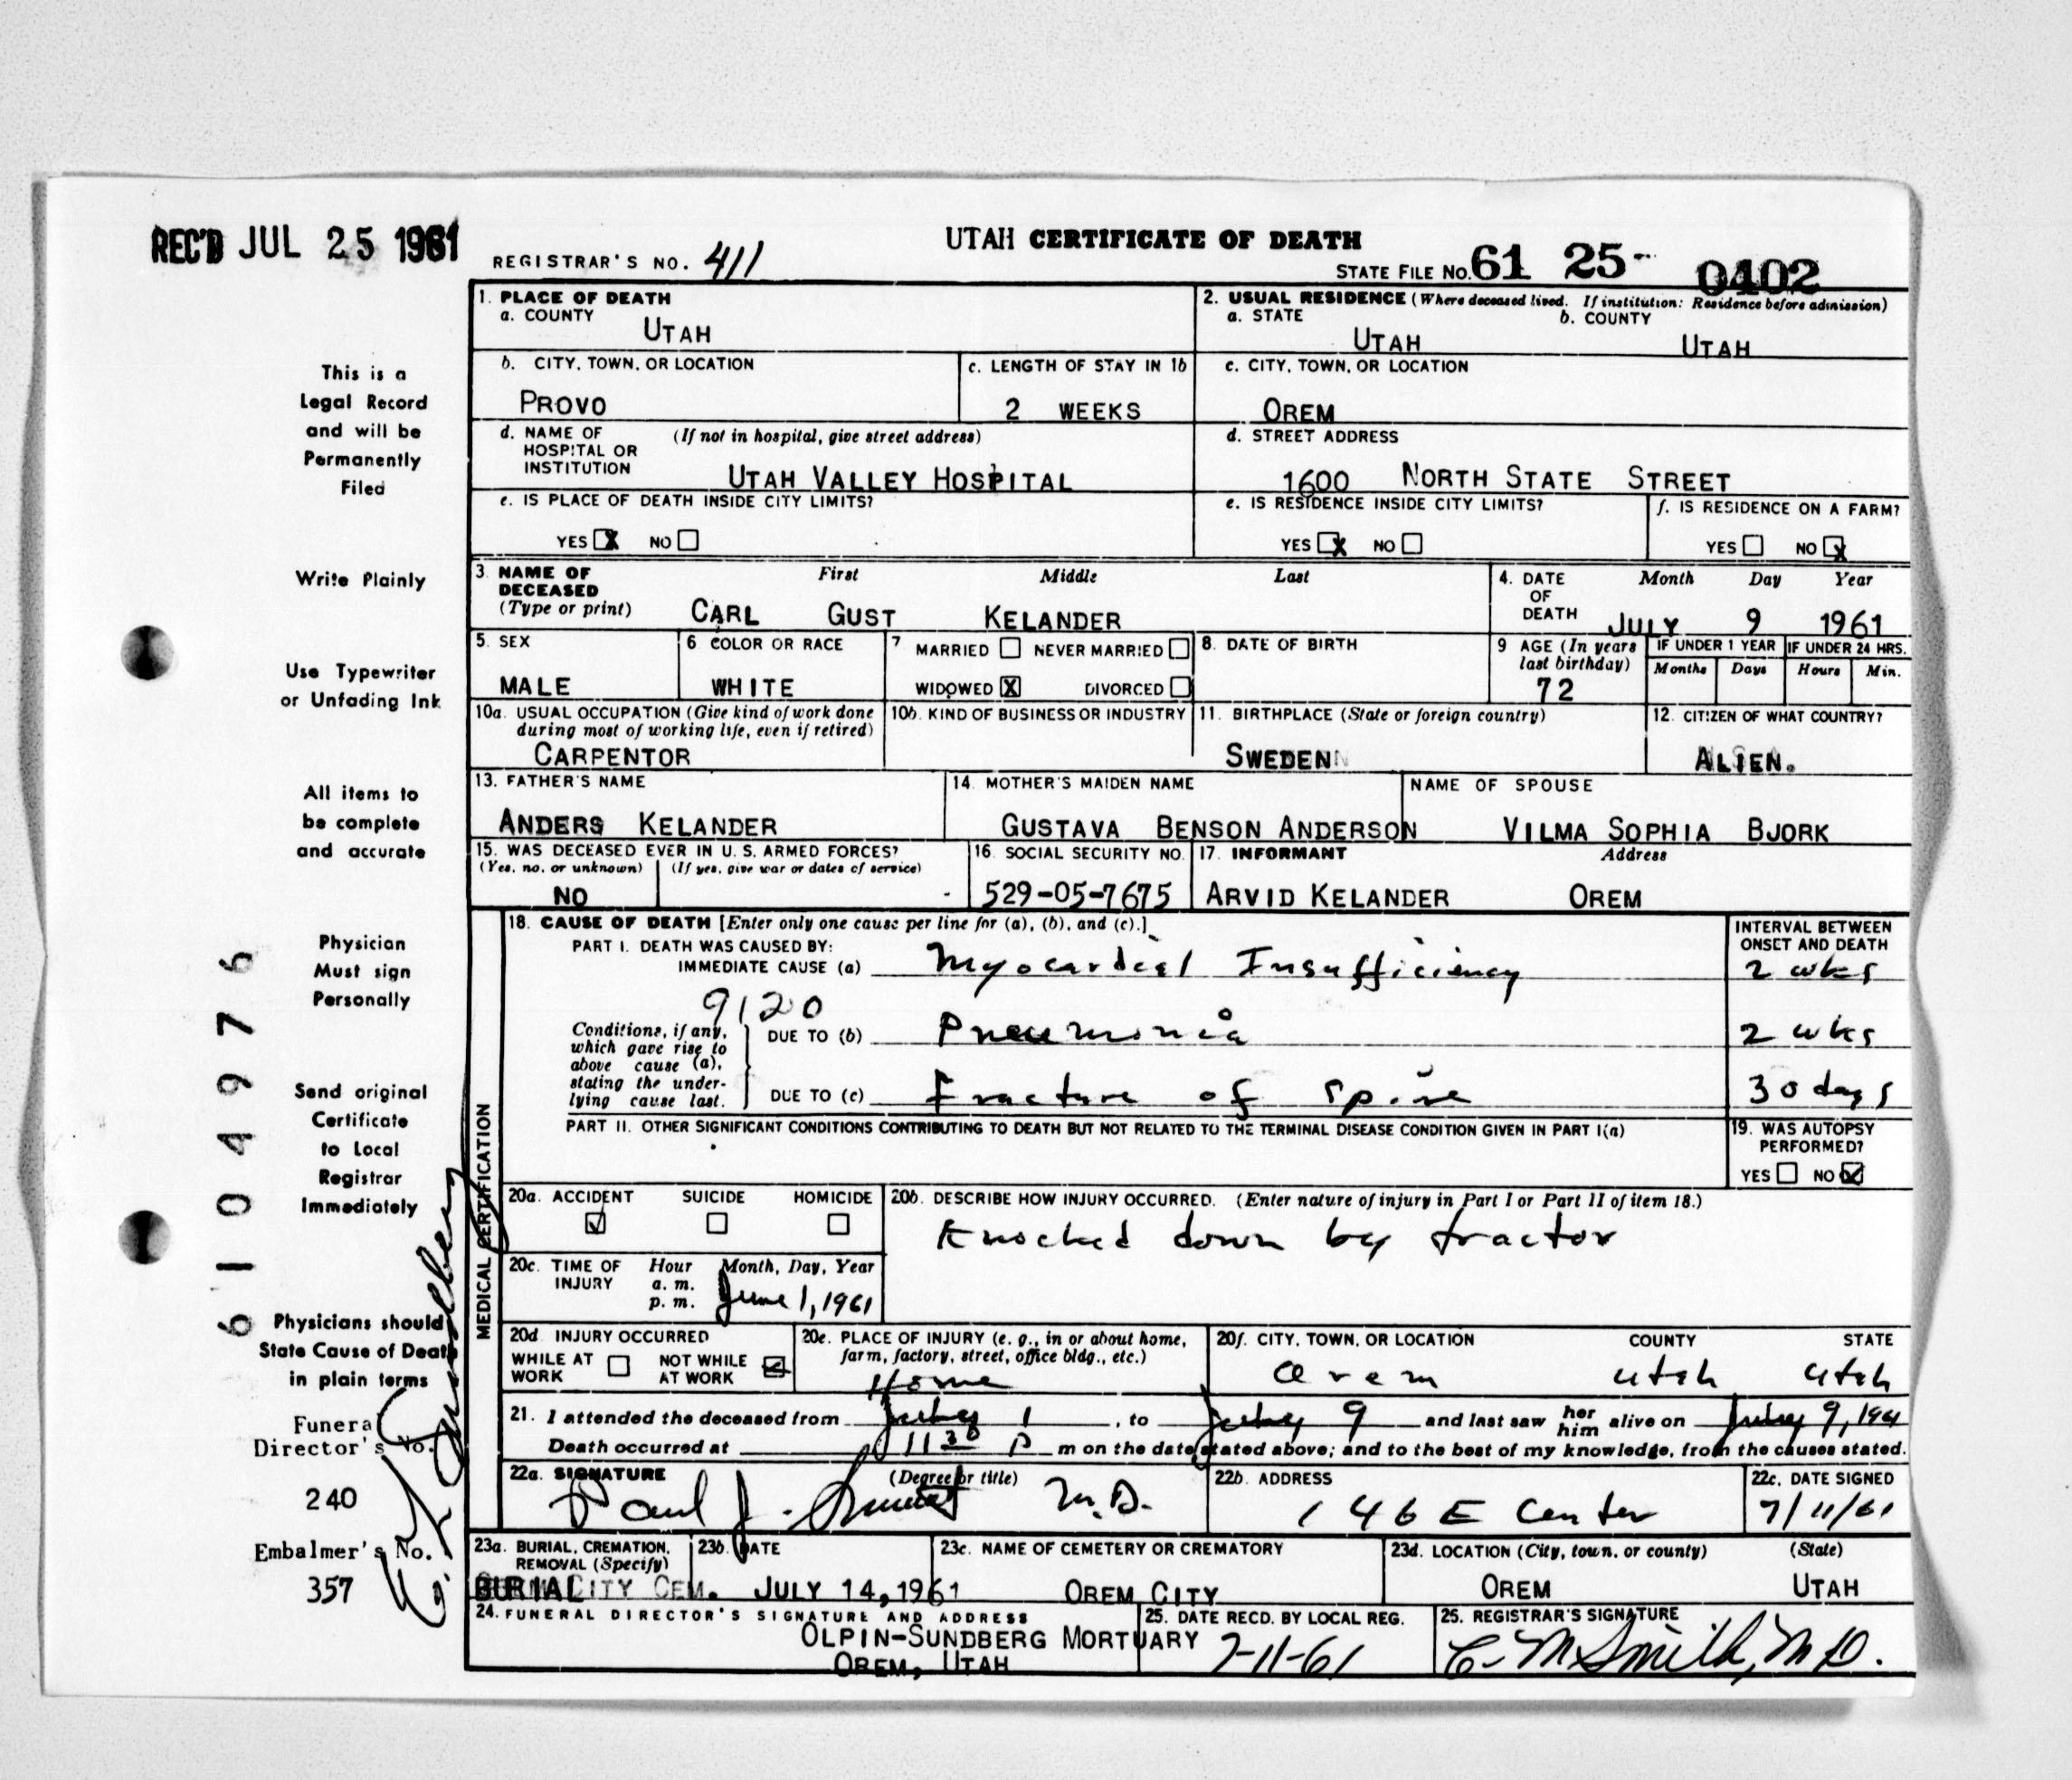 REC'D JUL 25 1961
UTAH CERTIFICATE OF DEATH
REGISTRAR'S NO. 411
STATE FILE NO. 61 25- 0402
1. PLACE OF DEATH
a. COUNTY
UTAH
2. USUAL RESIDENCE (Where deceased lived. If institution: Residence before admission)
a. STATE b. COUNTY
UTAH UTAH
b. CITY, TOWN, OR LOCATION
PROVO
c. LENGTH OF STAY IN 1b
2 WEEKS
c. CITY, TOWN, OR LOCATION
OREM
d. NAME OF HOSPITAL OR INSTITUTION (If not in hospital, give street address)
UTAH VALLEY HOSPITAL
d. STREET ADDRESS
1600 NORTH STATE STREET
e. IS PLACE OF DEATH INSIDE CITY LIMITS?
YES X NO
e. IS RESIDENCE INSIDE CITY LIMITS?
YES X NO
f. IS RESIDENCE ON A FARM?
YES NO X
3. NAME OF DECEASED (Type or print) First Middle Last
CARL GUST KELANDER
4. DATE OF DEATH Month Day Year
JULY 9 1961
5. SEX
MALE
6 COLOR OR RACE
WHITE
7 MARRIED NEVER MARRIED
WIDOWED X DIVORCED
8. DATE OF BIRTH
9 AGE (In years last birthday)
72
IF UNDER 1 YEAR IF UNDER 24 HRS.
Months Days Hours Min.
10a. USUAL OCCUPATION (Give kind of work done during most of working life, even if retired)
CARPENTOR
10b. KIND OF BUSINESS OR INDUSTRY
11. BIRTHPLACE (State or foreign country)
SWEDEN
12. CITIZEN OF WHAT COUNTRY?
ALIEN.
13. FATHER'S NAME
ANDERS KELANDER
14. MOTHER'S MAIDEN NAME
GUSTAVA BENSON ANDERSON
NAME OF SPOUSE
VILMA SOPHIA BJORK
15. WAS DECEASED EVER IN U. S. ARMED FORCES?
(Yes, no, or unknown) (If yes, give war or dates of service)
NO -
16. SOCIAL SECURITY NO.
529-05-7675
17. INFORMANT Address
ARVID KELANDER OREM
MEDICAL CERTIFICATION
18. CAUSE OF DEATH [Enter only one cause per line for (a), (b), and (c).]
PART I. DEATH WAS CAUSED BY:
IMMEDIATE CAUSE (a) Myocardial Insufficiency
INTERVAL BETWEEN ONSET AND DEATH
2 wks
9120
Conditions, if any, which gave rise to above cause (a), stating the underlying cause last.
DUE TO (b) Pneumonia 2 wks
DUE TO (c) Fracture of Spine 30 days
PART II. OTHER SIGNIFICANT CONDITIONS CONTRIBUTING TO DEATH BUT NOT RELATED TO THE TERMINAL DISEASE CONDITION GIVEN IN PART I(a)
19. WAS AUTOPSY PERFORMED?
YES NO
20a. ACCIDENT SUICIDE HOMICIDE
20b. DESCRIBE HOW INJURY OCCURRED. (Enter nature of injury in Part I or Part II of item 18.)
Knocked down by tractor
20c. TIME OF INJURY Hour a. m. p. m. Month, Day, Year
June 1, 1961
20d INJURY OCCURRED
WHILE AT WORK NOT WHILE AT WORK
20e. PLACE OF INJURY (e. g., in or about home, farm, factory, street, office bldg., etc.)
Home
20f. CITY, TOWN, OR LOCATION COUNTY STATE
Orem Utah Utah
21. I attended the deceased from July 1, to July 9 and last saw her him alive on July 9, 1961
Death occurred at 11 30 P m on the date stated above; and to the best of my knowledge, from the causes stated.
22a. SIGNATURE (Degree or title)
Paul J. M.D.
22b. ADDRESS
146 E Center
22c. DATE SIGNED
7/11/61
23a. BURIAL, CREMATION, REMOVAL (Specify)
BURIAL CITY CEM.
23b. DATE
JULY 14, 1961
23c. NAME OF CEMETERY OR CREMATORY
OREM CITY
23d. LOCATION (City, town, or county) (State)
OREM UTAH
24. FUNERAL DIRECTOR'S SIGNATURE AND ADDRESS
OLPIN-SUNDBERG MORTUARY
OREM, UTAH
25. DATE RECD. BY LOCAL REG.
7-11-61
25. REGISTRAR'S SIGNATURE
C. M Smith, M D.
This is a
Legal Record
and will be
Permanently
Filed
Write Plainly
Use Typewriter
or Unfading Ink
All items to
be complete
and accurate
Physician
Must sign
Personally
Send original
Certificate
to Local
Registrar
Immediately
Physicians should
State Cause of Death
in plain terms
Funeral
Director's No.
240
Embalmer's No.
357
6104976